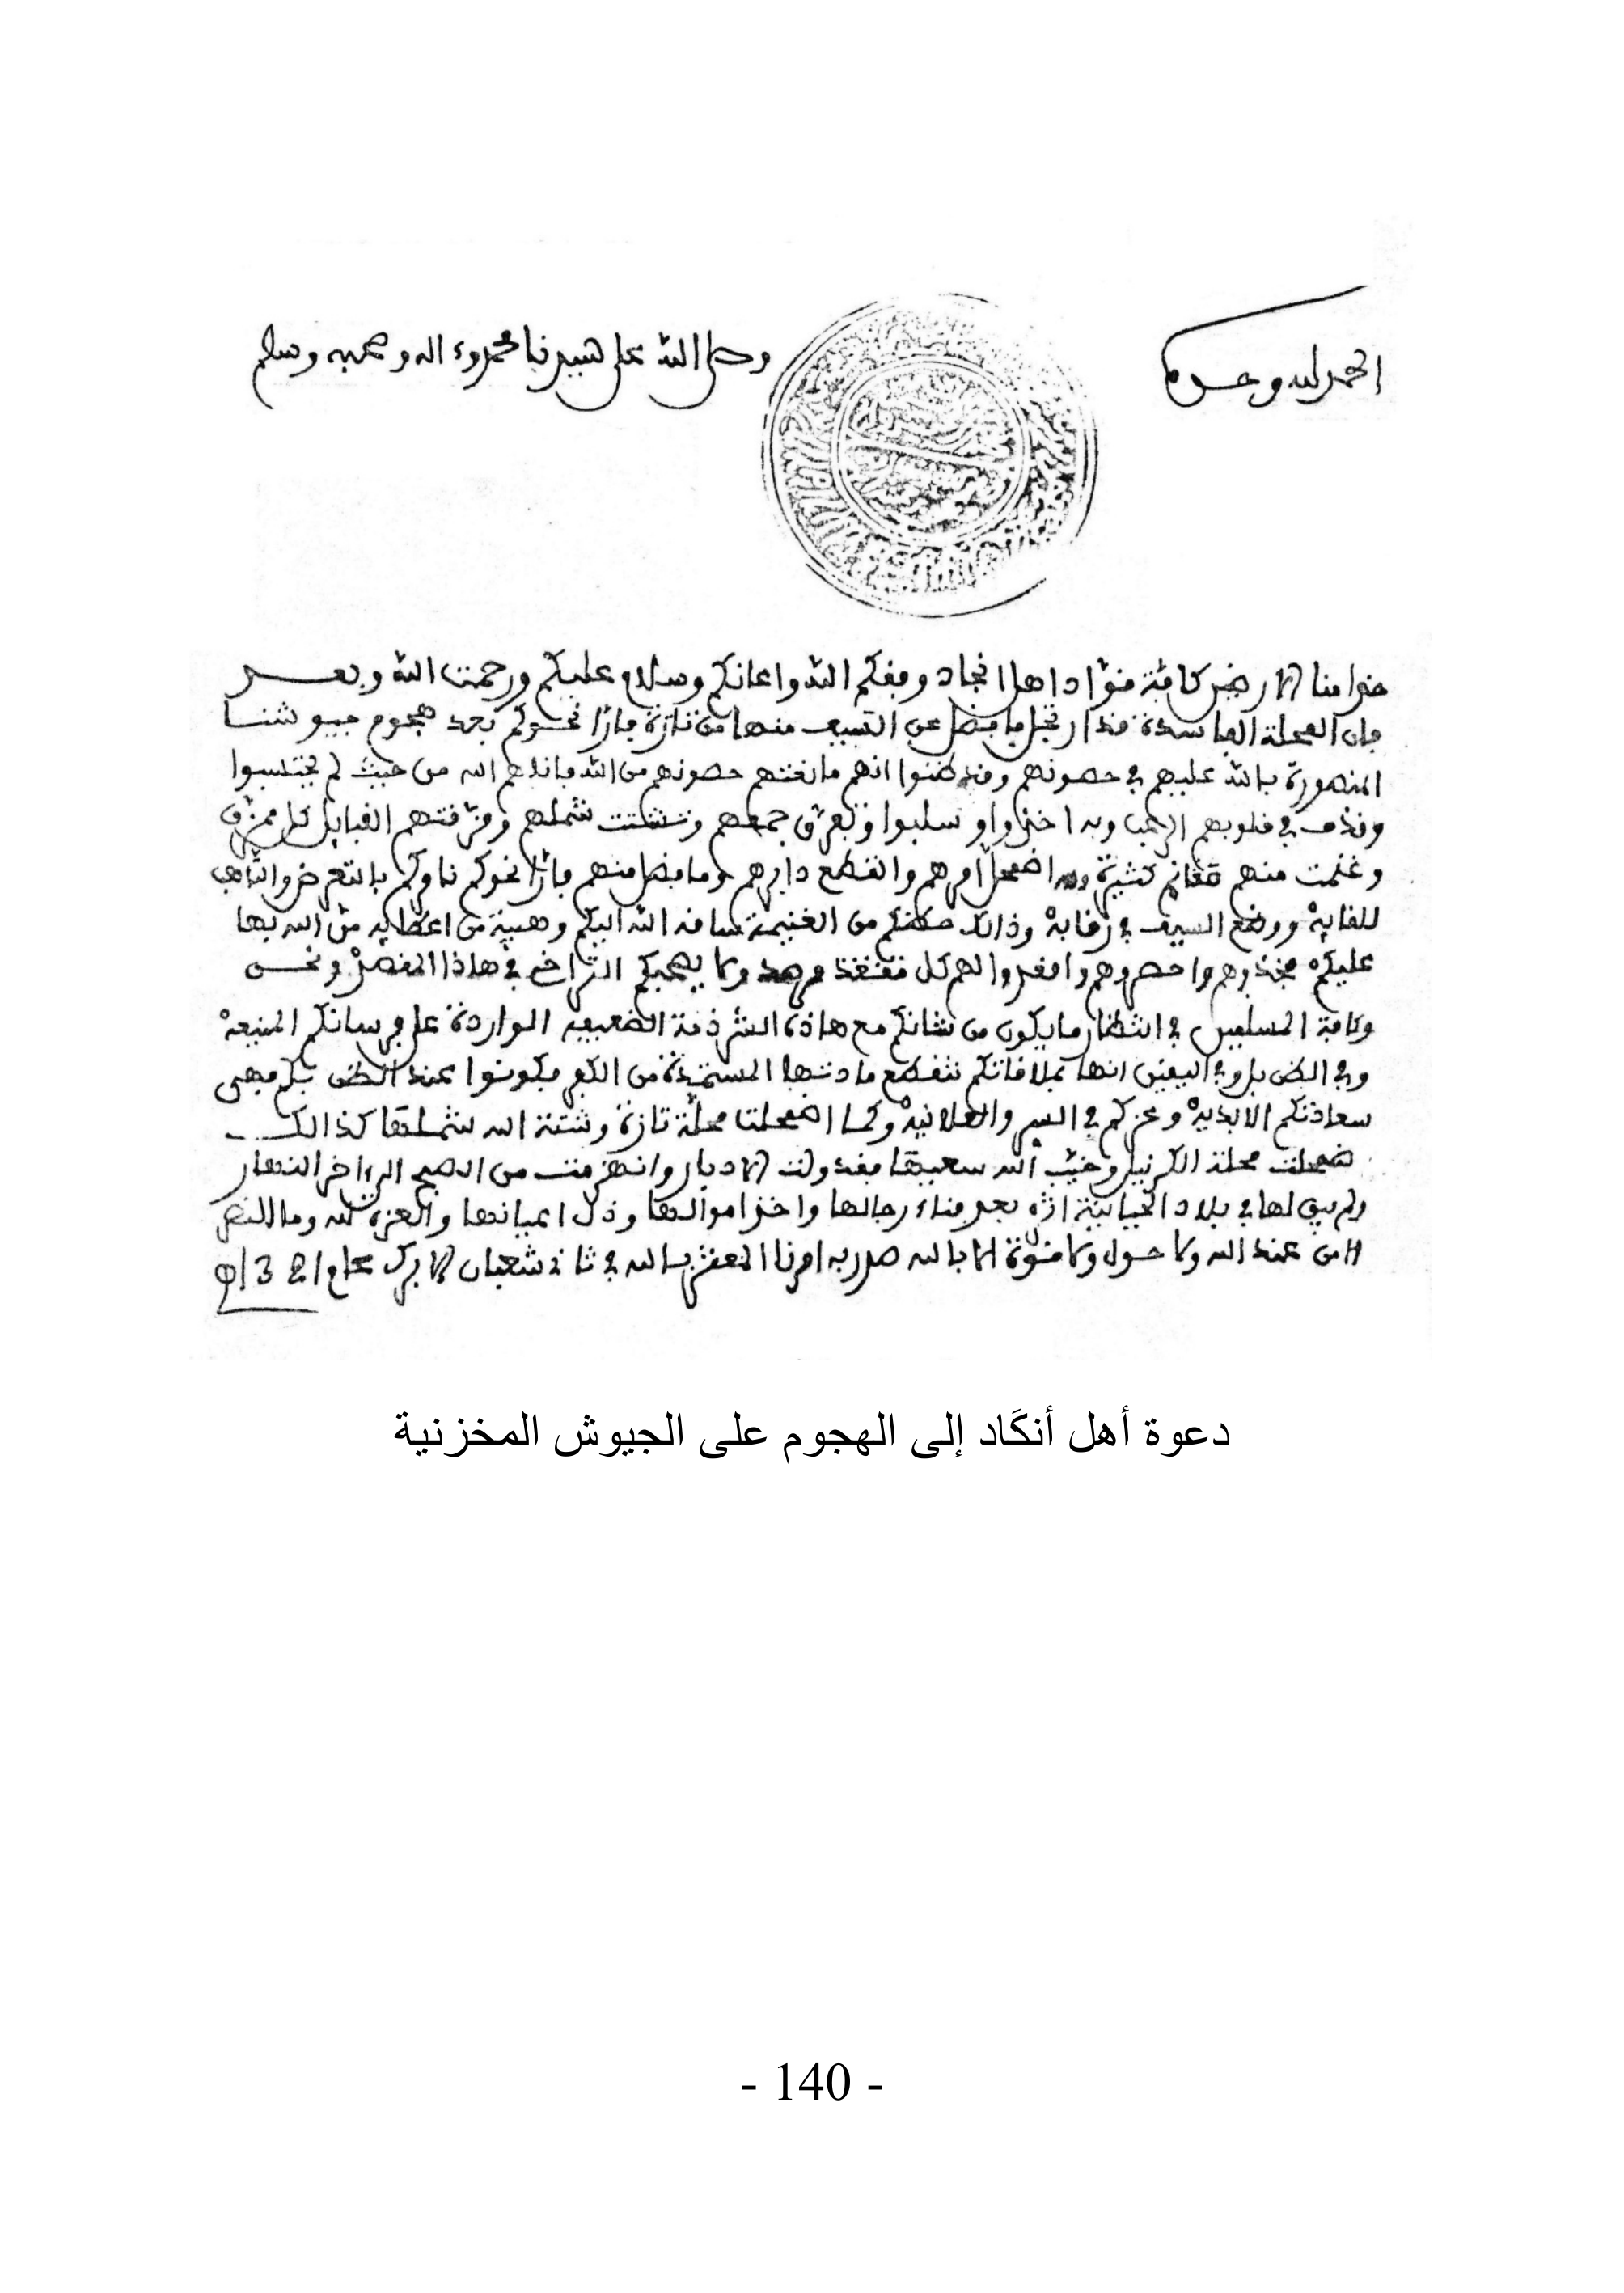 الحمد لله وحده
وصلى الله على سيدنا محمد وءاله وصحبه وسلم
خدامنا الارضين كافة قواد اهل انجاد وفقكم الله واعانكم وسلام عليكم ورحمت الله وبعد
فان المحلة الفاسدة قد ارتحل ما فضل عن السيف منها من تازة فارا نحوكم بعد هجوم جيوشنا
المنصورة بالله عليهم في حصونهم وقد ظنوا انهم مانعتهم حصونهم من الله فاتاهم الله من حيث لم يحتسبوا
وقذف في قلوبهم الرعب وبه اخذوا وسلبوا وتفرق جمعهم وتشتت شملهم ومزقتهم القبايل كل ممزق
وغنمت منهم غنايم كثيرة اضمحل امرهم وانقطع دابرهم وما فضل منهم فارا نحوكم ناوكم بالتعرض والتاهب
للقايه ووضع السيف في رقابه وذالك حظكم من الغنيمة ساقه الله اليكم وهبية من اعطايه من الله بها
عليكم فخذوهم واحصروهم واقعدوا لهم كل ولا يصحبكم التراخي في هاذا المقصد ونحن
وكافة المسلمين في انتظار ما يكون من شانكم مع هاذه الشرذمة الضعيفه الواردة على فرسانكم المنيعه
وفي الظن بل وفي اليقين انها بملاقاتكم تنقطع مادتها المستمدة من الكفر فكونوا عند الظن بكم فهي
سعادتكم الابدية وعزكم في السر والعلانية وكما اضمحلت محلة تازة وشتت الله شملها كذالك
ضمحلت محلة الكرنيل وخيب الله سعيها فقد ولت الادبار وانهزمت من الصبح الى اخر النهار
ولم يبق لها في بلاد الحياينة اثر بعد فناء رجالها واخذ اموالها وذل اعيانها والعزة لله وما النصر
الا من عند الله ولا حول ولا قوة الا بالله صدر به امرنا المعتز بالله في ثاني شعبان الابرك عام 1321
دعوة أهل أنكَاد إلى الهجوم على الجيوش المخزنية
- 140 -